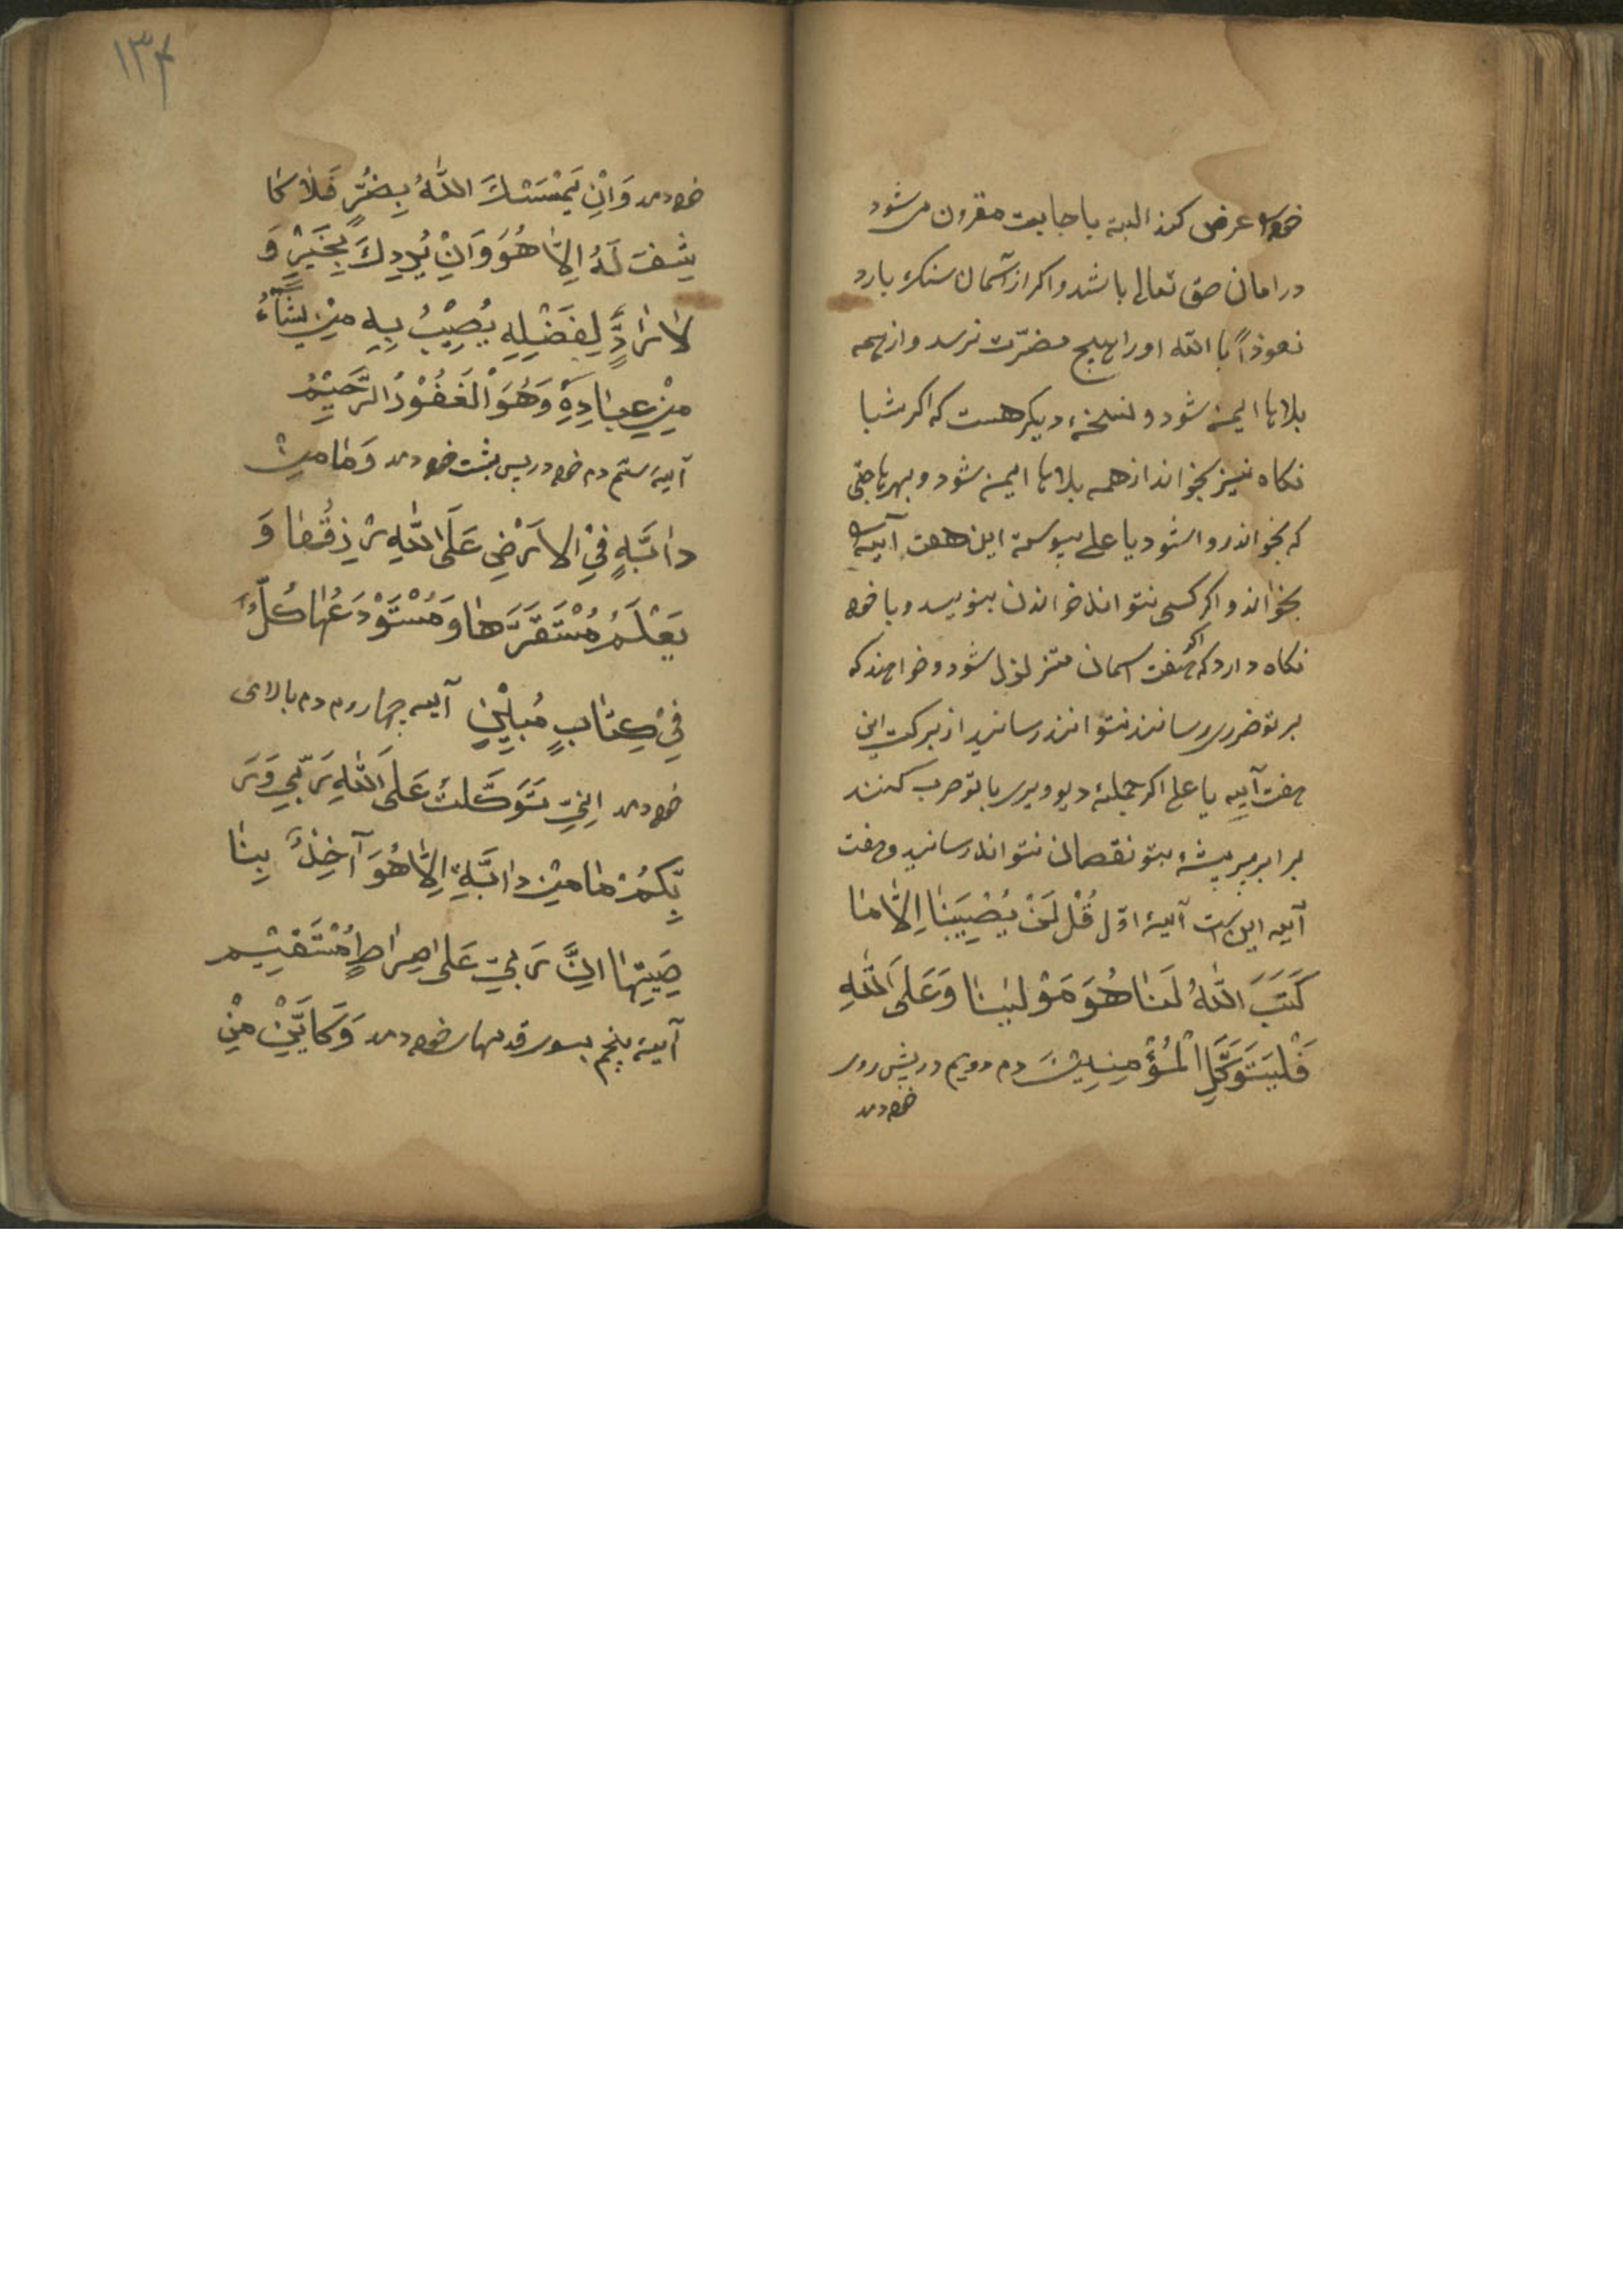 خود را عرض کند البته باجابت مقرون می شود
در امان حق تعالی باشد و اکر از آسمان سنک بارد
نعوذاً باالله او را هیچ مضرّت نرسد و از همه
بلاها ایمن شود و نسخهٔ دیکر هست که اکر شبا
نکاه نیز بخواند از همه بلاها ایمن شود و بهر حاجتی
که بخواند روا شود یا علی پیوسته این هفت آیه را
بخواند و اکر کسی نتواند خواندن بنویسد و با خود
نکاه دارد که اکر هفت اسمان متزلزل شود و خواهند که
بر تو ضرری رسانند نتوانند رسانید از برکت این
هفت آیه یا علی اکر جملهٔ دیو و پری با تو حرب کنند
برابر پر پیشهٔ بتو نقصان نتواند رسانید و هفت
آیه این است آیهٔ اوّل قُلْ لَنْ يُصِيبَنَا اِلَّا مَا
كَتَبَ اللهُ لَنَا هُوَ مَوْلينَا وَعَلَى اللهِ
فَلْيَتَوَكَّلِ الْمُؤْمِنِينَ دم دویم در پیش روی
خود دمد
۱۳۴
خود دمد وَاِنْ يَمْسَسْكَ اللهُ بِضُرٍّ فَلَا كَا
شِفَ لَهُ اِلَّا هُوَ وَاِنْ يُرِدْكَ بِخَيْرٍ وَ
لَا رَادَّ لِفَضْلِهِ يُصِيْبُ بِهِ مِنْ يَشَاءُ
مِنْ عِبَادِهِ وَهُوَ الْغَفُوْرُ الرَّحِيْمُ
آیهٔ ستم دم خود در پس پشت خود دمد وَمَا مِنْ
دَابَّةٍ فِي الْاَرْضِ عَلَى اللهِ رِزْقُهَا وَ
يَعْلَمُ مُسْتَقَرَّهَا وَمُسْتَوْدَعُهَا كُلٌّ
فِيْ كِتَابٍ مُبِيْنٍ آیه چهاروم دم بالای
خود دمد اِنِّي تَوَكَّلْتُ عَلَى اللهِ رَبِّي وَرَ
بِّكُمْ مَا مِنْ دَابَّةٍ اِلَّا هُوَ آخِذٌ بِنَا
صِيَتِهَا اِنَّ رَبِّي عَلَى صِرَاطٍ مُسْتَقِيْم
آیهٔ پنجم بسوی قدمهای خود دمد وَكَايِّنْ مِنْ